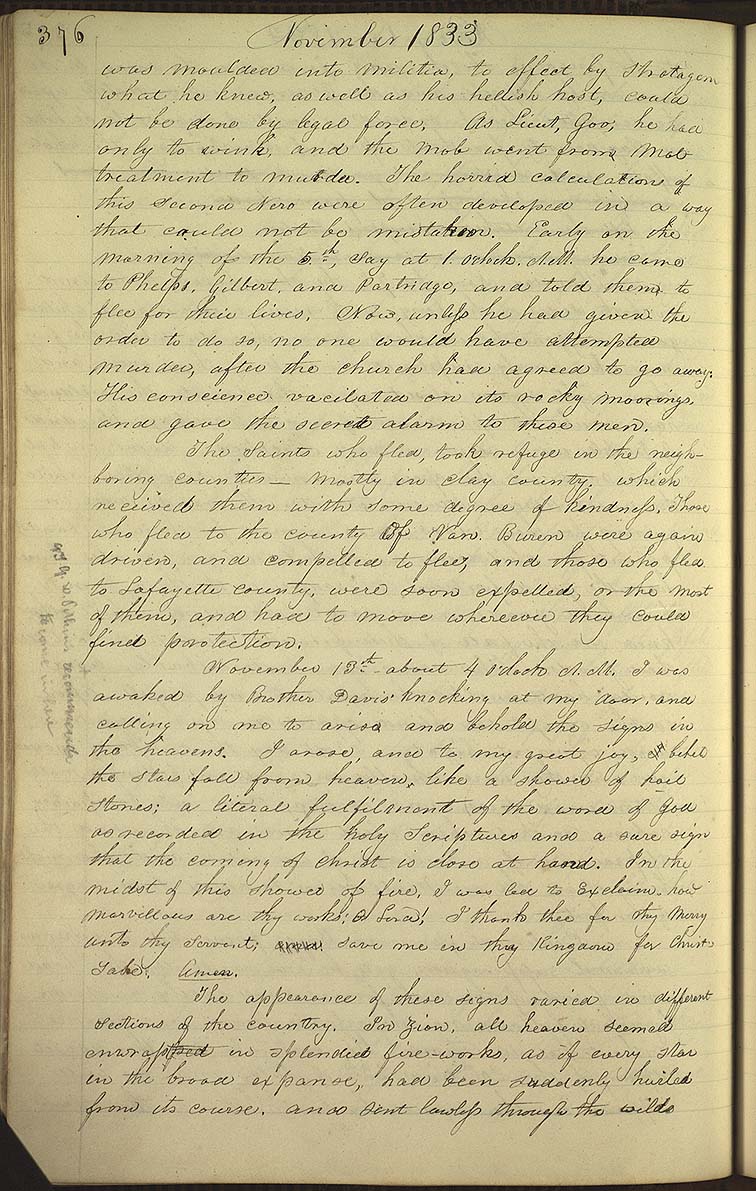 376
November 1833
was moulded into militia, to effect by Stratagem
what he knew, as well as his hellish host, could
not be done by legal force. As Lieut, Gov; he had
only to wink, and the mob went from Mob
treatment to murder. The horrid calculations of
this second Nero were often developed in a way
that could not be mistaken. Early on the
morning of the 5th, say at 1. o'clock. A.M. he came
to Phelps, Gilbert, and Partridge, and told them to
flee for their lives. Now, unless he had given the
order to do so, no one would have attempted
murder, after the church had agreed to go away.
His conscience vacilated on its rocky moorings,
and gave the secret alarm to these men.
The Saints who fled, took refuge in the neigh-
boring counties — mostly in clay county, which
received them with some degree of kindness, Those
who fled to the county Of Van. Buren were again
driven, and compelled to flee, and those who fled
to Lafayette county, were soon expelled, or the most
of them, and had to move wherever they could
find protection.
November 13th about 4 o'clock A.M. I was
awaked by Brother Davis' knocking at my door, and
calling on me to arise and behold the signs in
the heavens. I arose, and to my great joy,
the stars fall from heaven, like a shower of hail
stones; a literal fulfilment of the word of God
as recorded in the holy Scriptures and a sure sign
that the coming of Christ is close at hand. In the
midst of this shower of fire, I was led to Exclaim, how
marvellous are thy works; O Lord! I thank thee for thy Mercy
unto thy Servent; save me in thy Kingdom for Christ
Sake; Amen.
The appearance of these signs varied in different
sections of the country. In Zion, all heaven seemed
enwrapped in splendid fire-works, as if every star
in the broad expanse, had been suddenly hurled
from its course, and sent lawless through the wilds